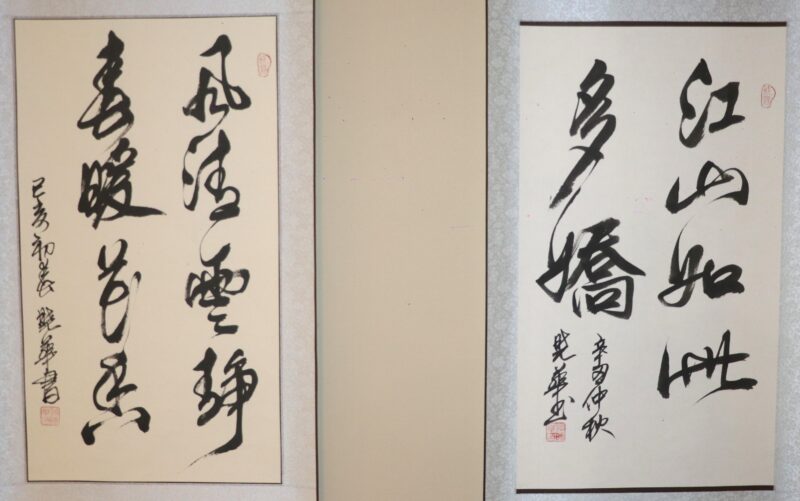 江山如此
多嬌
辛丑仲秋
華书
風清雲靜
春暖花香
己亥初春 華書